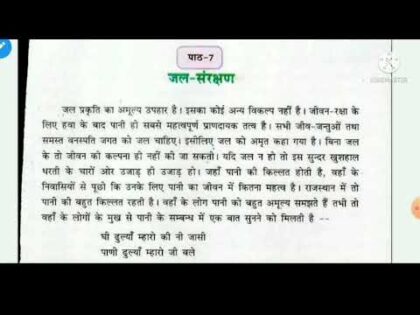 पाठ-7
जल-संरक्षण
जल प्रकृति का अमूल्य उपहार है। इसका कोई अन्य विकल्प नहीं है। जीवन-रक्षा के
लिए हवा के बाद पानी ही सबसे महत्वपूर्ण प्राणदायक तत्व है। सभी जीव-जन्तुओं तथा
समस्त वनस्पति जगत को जल चाहिए। इसीलिए जल को अमृत कहा गया है। बिना जल
के तो जीवन की कल्पना ही नहीं की जा सकती। यदि जल न हो तो इस सुन्दर खुशहाल
धरती के चारों ओर उजाड़ ही उजाड़ हो। जहाँ पानी की किल्लत होती है, वहाँ के
निवासियों से पूछो कि उनके लिए पानी का जीवन में कितना महत्व है। राजस्थान में तो
पानी की बहुत किल्लत रहती है। वहाँ के लोग पानी को बहुत अमूल्य समझते हैं तभी तो
वहाँ के लोगों के मुख से पानी के सम्बन्ध में एक बात सुनने को मिलती है --
घी ढुल्याँ म्हारो की नी जासी
पाणी ढुल्याँ म्हारो जी बले